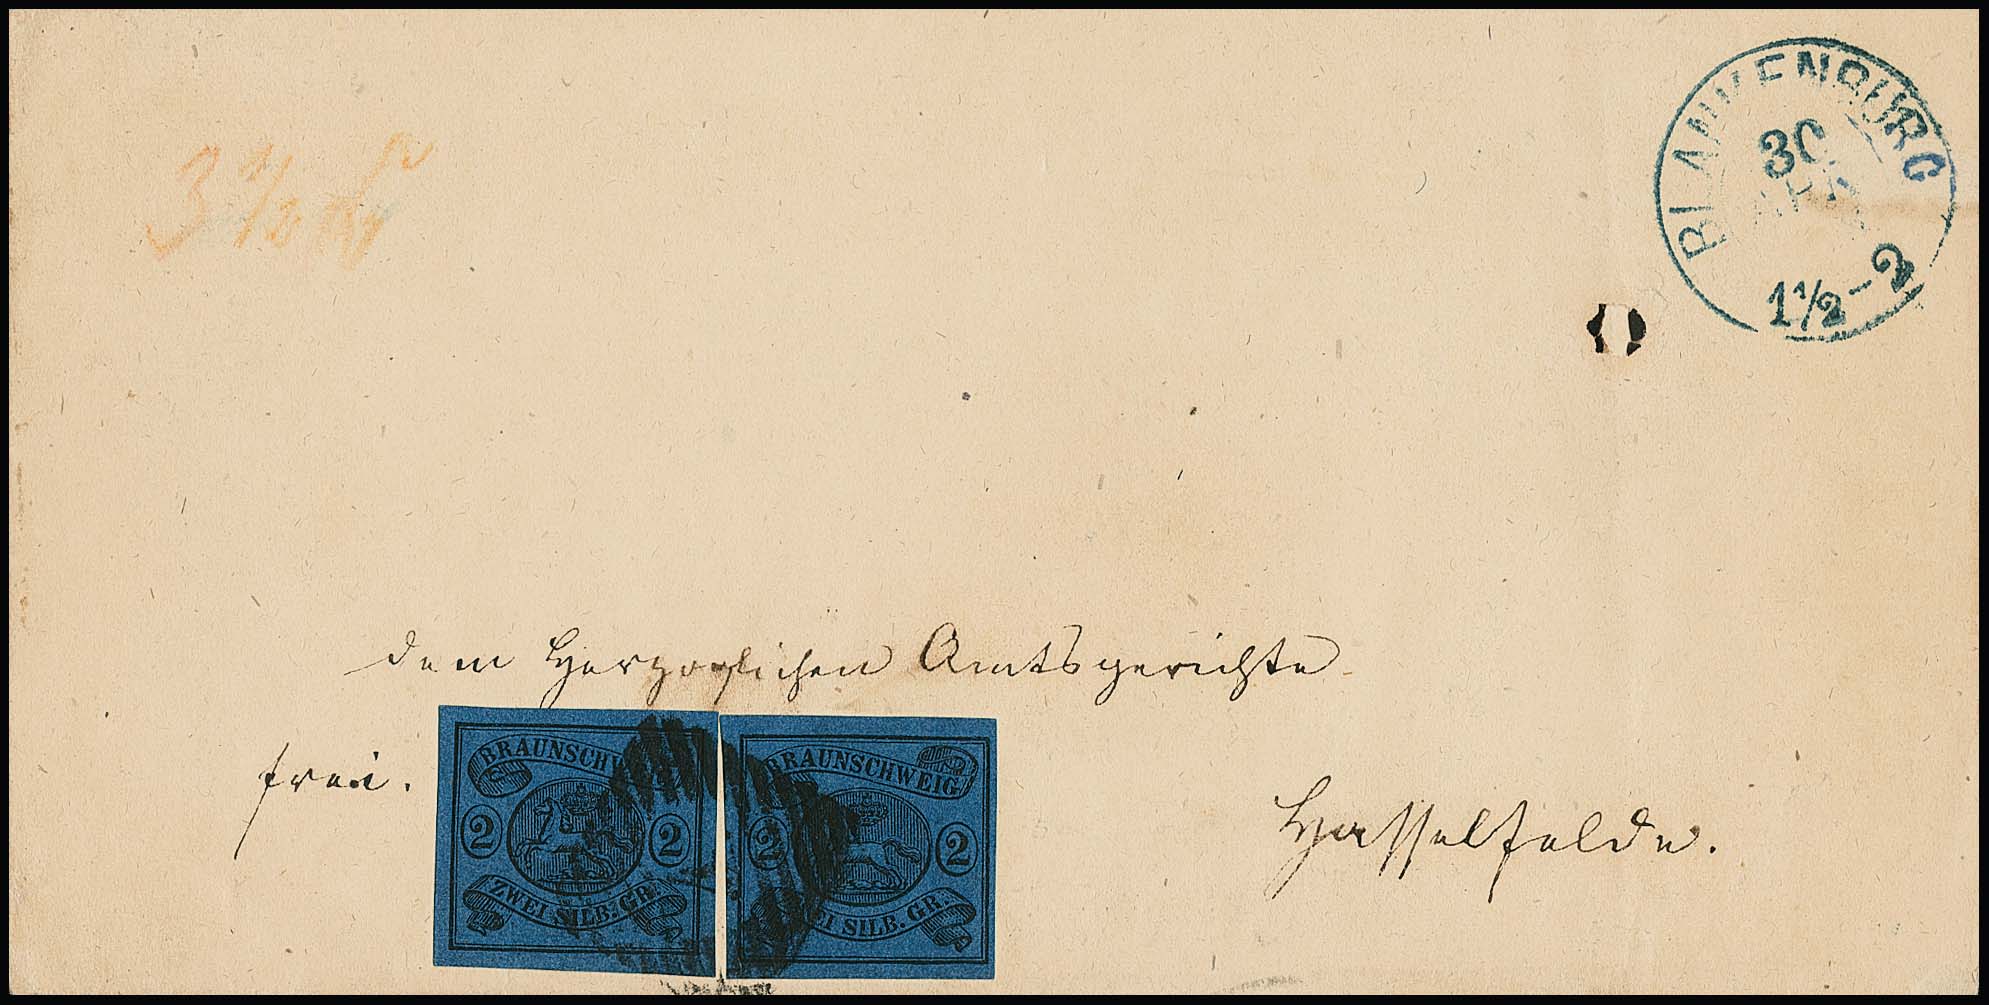 BLANKENBURG
30
APR
1 1/2 - 2
3 1/2
dem Herzoglichen Amtsgerichte
frei.
Hasselfelde.
BRAUNSCHW
2 2
ZWEI SILB: GR.
BRAUNSCHWEIG
2 2
EI SILB. GR.